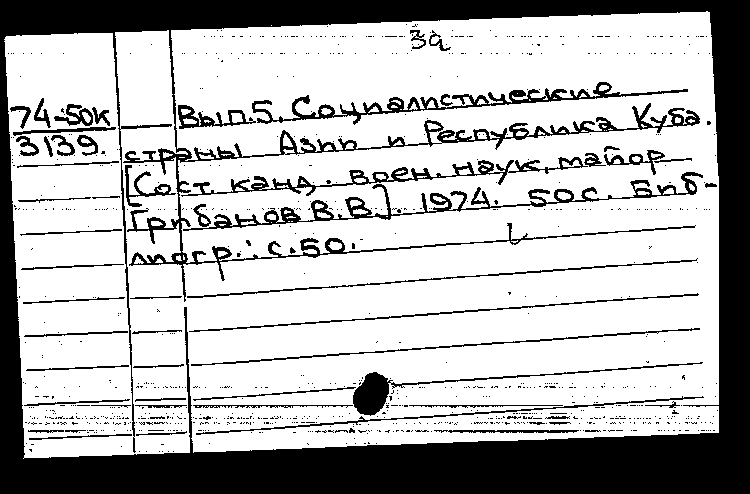 3а
74-50к
3139.
Вып.5. Социалистические
страны Азии и Республика Куба.
[Сост. канд. воен. наук, майор
Грибанов В.В.]. 1974. 50с. Биб-
лиогр.: с.50.